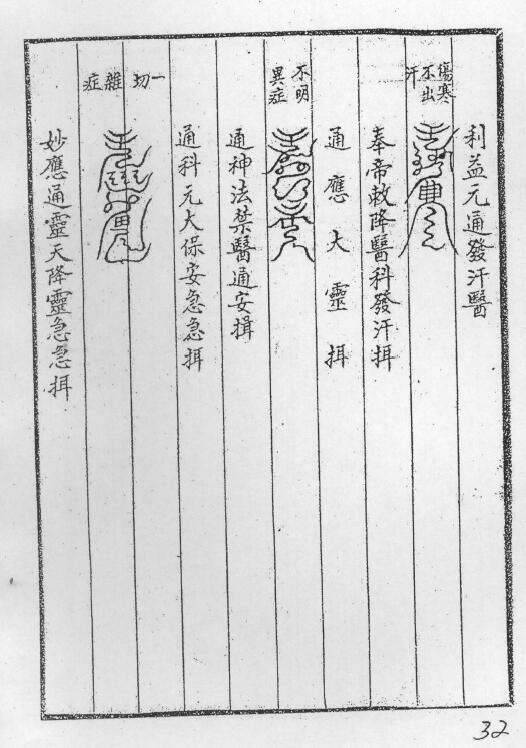 利益元通發汗醫
傷寒不出汗
奉帝敕降醫科發汗揖
通應大靈揖
不明異症
通神法禁醫通安揖
通科元大保安急急揖
一切雜症
妙應通靈天降靈急急揖
32